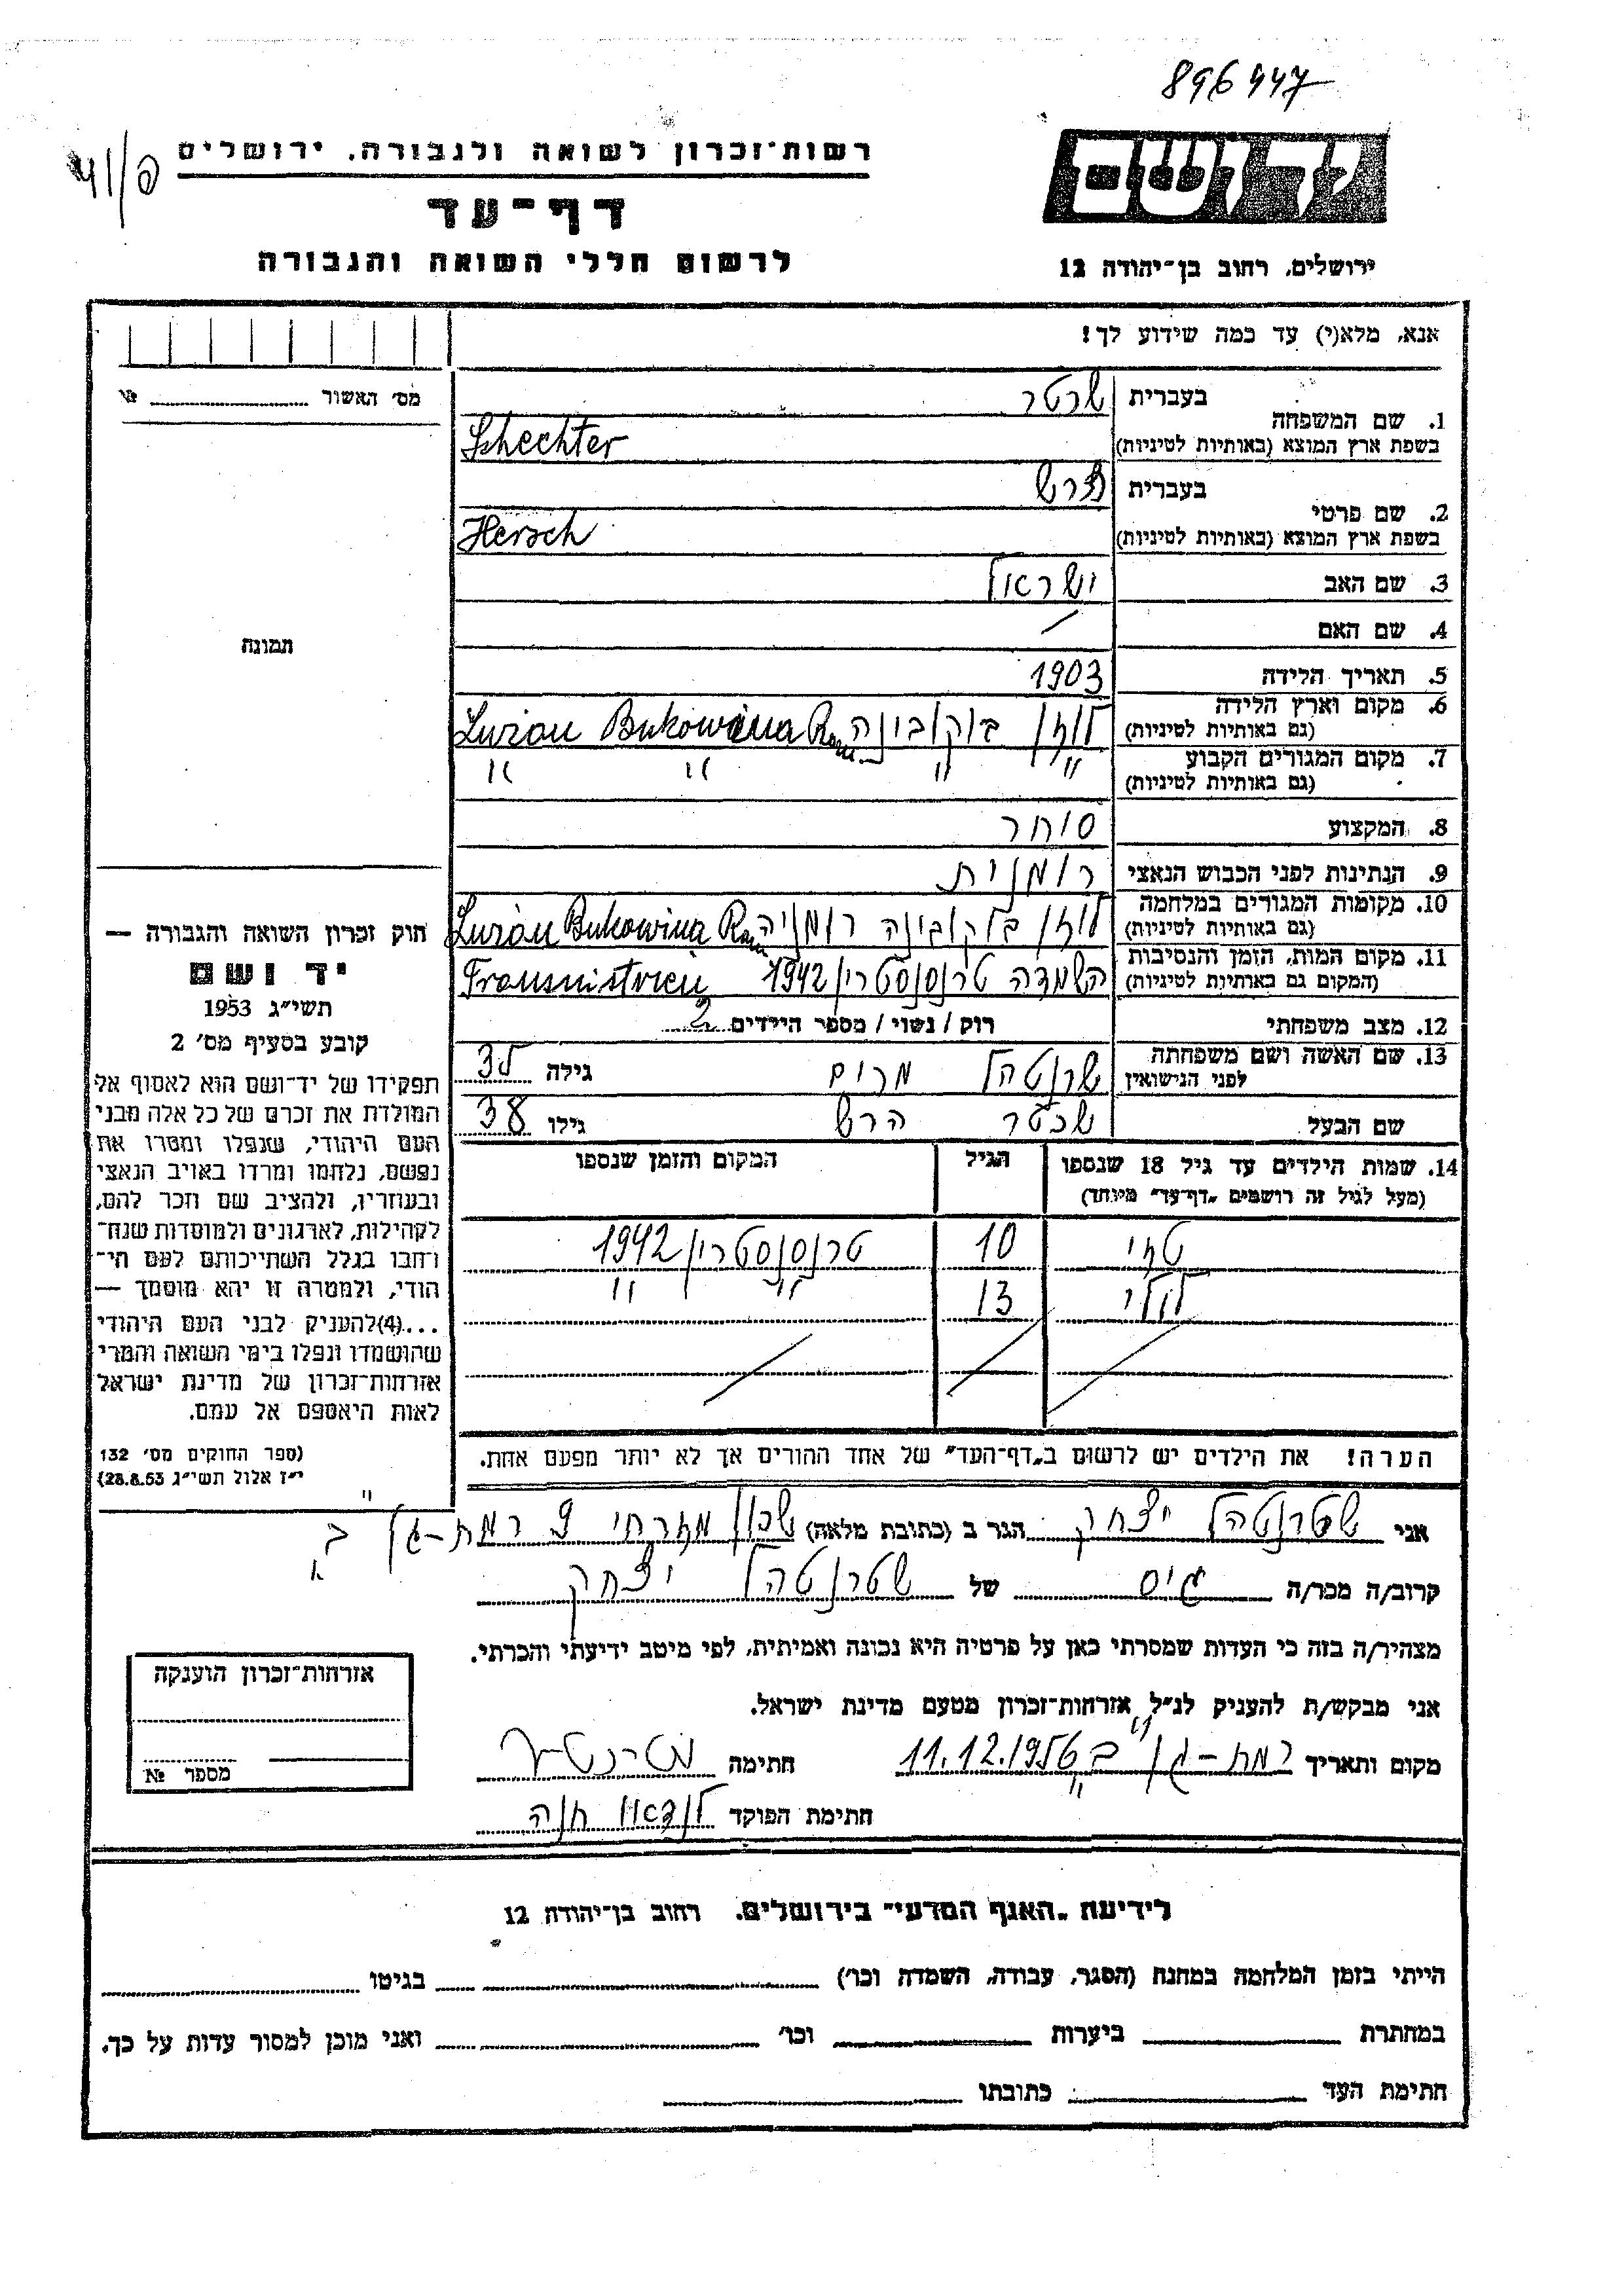 896447
41/פ
רשות־זכרון לשואה ולגבורה, ירושלים
דף־עד
לרשום חללי השואה והגבורה
יד ושם
ירושלים, רחוב בן־יהודה 12
אנא, מלא(י) עד כמה שידוע לך!
מס' האשור № 
תמונה
חוק זכרון השואה והגבורה —
יד ושם
תשי"ג 1953
קובע בסעיף מס' 2
תפקידו של יד־ושם הוא לאסוף אל
המולדת את זכרם של כל אלה מבני
העם היהודי, שנפלו ומסרו את
נפשם, נלחמו ומרדו באויב הנאצי
ובעוזריו, ולהציב שם וזכר להם,
לקהילות, לארגונים ולמוסדות שנח־
רבו בגלל השתייכותם לעם הי־
הודי, ולמטרה זו יהא מוסמך —
...(4)להעניק לבני העם היהודי
שהושמדו ונפלו בימי השואה והמרי
אזרחות־זכרון של מדינת ישראל
לאות היאספם אל עמם.
(ספר החוקים מס' 132
י"ז אלול תשי"ג 28.8.53)
1. שם המשפחה
בעברית שכטר
בשפת ארץ המוצא (באותיות לטיניות) Schechter
2. שם פרטי
בעברית הרש
בשפת ארץ המוצא (באותיות לטיניות) Hersch
3. שם האב ישראל
4. שם האם /
5. תאריך הלידה 1903
6. מקום וארץ הלידה (גם באותיות לטיניות) לוזן בוקובינה Luzan Bukowina Rom.
7. מקום המגורים הקבוע (גם באותיות לטיניות) " " " "
8. המקצוע סוחר
9. הנתינות לפני הכבוש הנאצי רומנית
10. מקומות המגורים במלחמה (גם באותיות לטיניות) לוזן בוקובינה רומניה Luzan Bukowina Rom
11. מקום המות, הזמן והנסיבות (המקום גם באותיות לטיניות) השמדה טרנסנסטרין 1942 Transnistrien
12. מצב משפחתי רוק / נשוי / מספר הילדים 2
13. שם האשה ושם משפחתה לפני הנישואין מרים גילה 35
שם הבעל שכטר הרש גילו 38
14. שמות הילדים עד גיל 18 שנספו הגיל המקום והזמן שנספו
(מעל לגיל זה רושמים „דף־עד" מיוחד)
10 טרנסנסטרין 1942
13 " " "
הערה! את הילדים יש לרשום ב„דף־העד" של אחד ההורים אך לא יותר מפעם אחת.
אני שטרנטהל יצחק הגר ב (כתובת מלאה) שכון מזרחי רמת-גן ב'
קרוב/ה מכר/ה גיס של שטרנטהל יצחק
מצהיר/ה בזה כי העדות שמסרתי כאן על פרטיה היא נכונה ואמיתית, לפי מיטב ידיעתי והכרתי.
אני מבקש/ת להעניק לנ"ל אזרחות־זכרון מטעם מדינת ישראל.
מקום ותאריך רמת-גן ב' 11.12.1956 חתימה
חתימת הפוקד לנדאו חנה
אזרחות־זכרון הוענקה
מספר №
לידיעת „האגף המדעי" בירושלים. רחוב בן־יהודה 12
הייתי בזמן המלחמה במחנה (הסגר, עבודה, השמדה וכו') בגיטו
במחתרת ביערות וכו' ואני מוכן למסור עדות על כך.
חתימת העד כתובתו